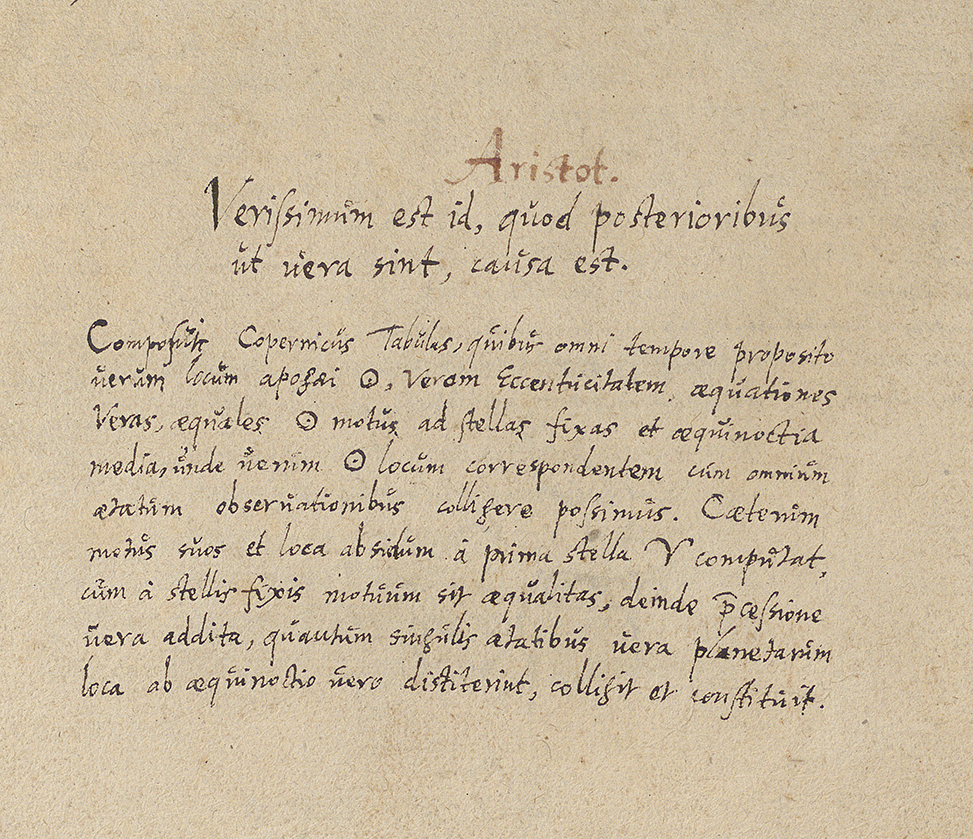 Aristot.
Verissimum est id, quod posterioribus
ut vera sint, causa est.
Composuit Copernicus Tabulas, quibus omni tempore proposito
verum locum apogæi ☉, veram Eccentricitatem, æquationes
veras, æquales ☉ motus ad stellas fixas et æquinoctia
media, unde verum ☉ locum correspondentem cum omnium
ætatum observationibus colligere possimus. Cæterum
motus suos et loca absidum à prima stella ♈ computat,
cùm à stellis fixis motuum sit æqualitas, deinde p̄cessione
vera addita, quantum singulis ætatibus vera planetarum
loca ab æquinoctio vero distiterint, colligit et constituit.